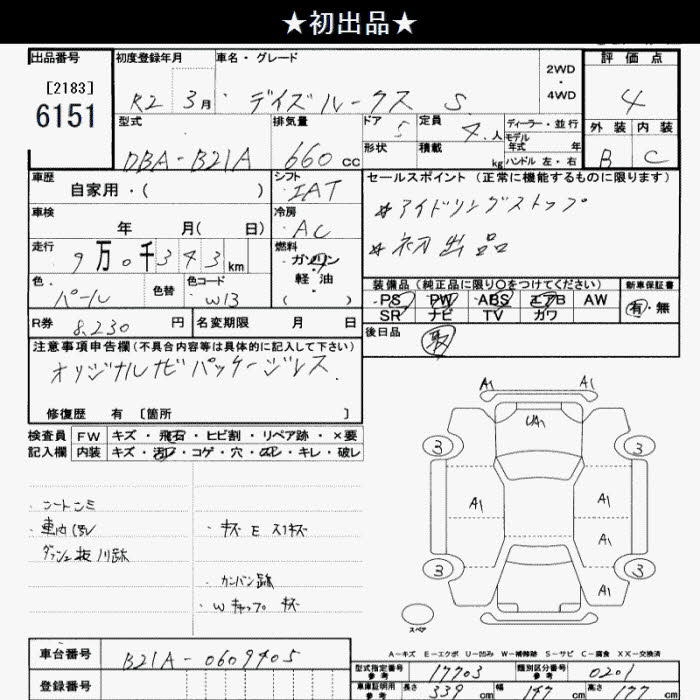 ★初出品★
出品番号 初度登録年月 車名・グレード 2WD ・ 4WD 評価点
[2183]
6151 R2 3月 デイズルークス S 4
型式 排気量 ドア 5 定員 4人 ディーラー・並行 外装 内装
モデル年式 年
DBA-B21A 660cc 形状 積載 kg ハンドル 左・右 B C
車歴 シフト セールスポイント (正常に機能するものに限ります)
自家用・( ) IAT ☆アイドリングストップ
車検 冷房
年 月( 日) AC ☆初出品
走行 燃料
9万0千343km ガソリン・軽油 ( )
色 色替 色コード 装備品 (純正品に限り○をつけてください) 新車保証書
パール W13 PS PW ABS エアB AW 有・無
SR ナビ TV カワ
R券 8,230円 名変期限 月 日 後日品
注意事項申告欄(不具合内容等は具体的に記入して下さい)
オリジナルナビパッケージレス
修復歴 有 [箇所 ]
検査員 FW キズ・飛石・ヒビ割・リペア跡・×要
記入欄 内装 キズ・汚レ・コゲ・穴・スレ・キレ・破レ
A1 A1
UA1
3 3
・シートシミ A1 A1
・車内汚レ ・キズ E スリキズ A1
3 3
・カンバン跡 A1
・Wキャップ キズ
スペア
A-キズ E-エクボ U-凹み W-補修跡 S-サビ C-腐食 XX-交換済
車台番号 B21A-0609405 型式指定番号 参考 17703 類別区分番号 参考 0201
登録番号 車庫証明用 参考 長さ 339cm 幅 147cm 高さ 177cm